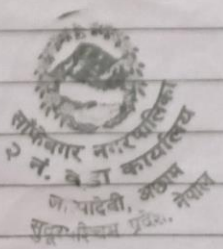 साँफेबगर नगरपालिका
२ नं. वडा कार्यालय
जयादेवी, अछाम
सुदूरपश्चिम प्रदेश, नेपाल